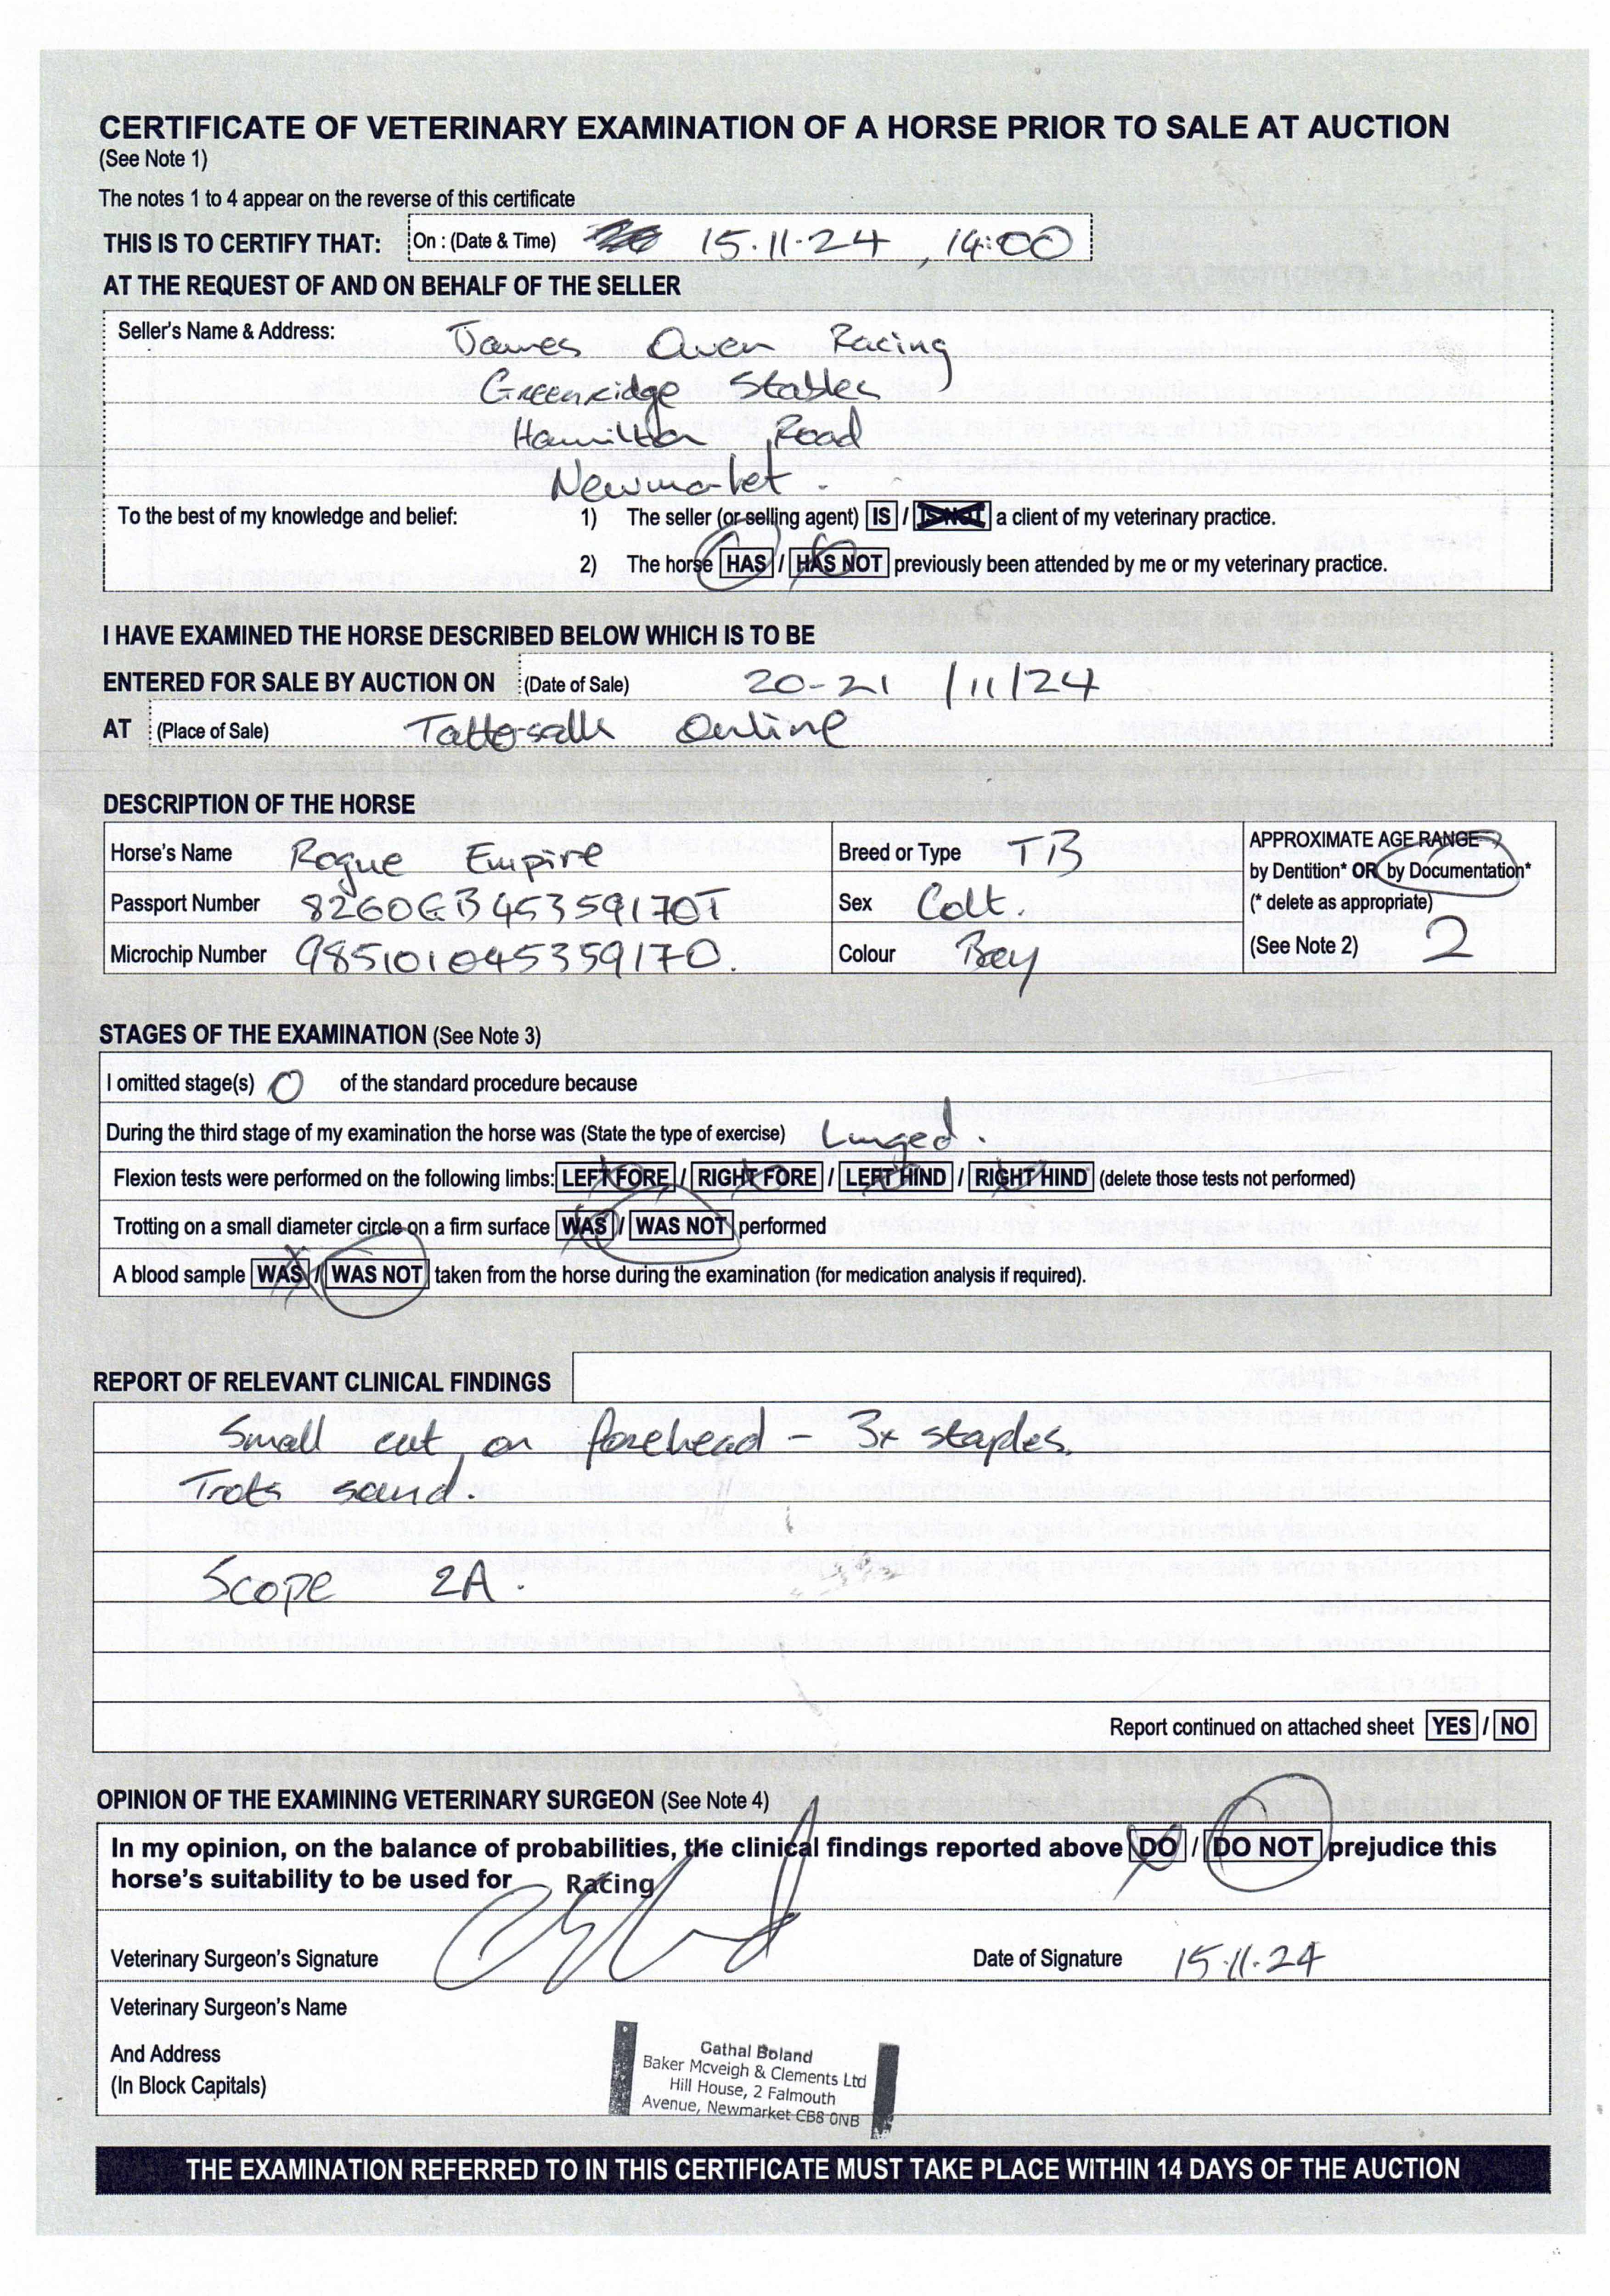 CERTIFICATE OF VETERINARY EXAMINATION OF A HORSE PRIOR TO SALE AT AUCTION
(See Note 1)
The notes 1 to 4 appear on the reverse of this certificate
THIS IS TO CERTIFY THAT: On : (Date & Time) 15.11.24, 14:00
AT THE REQUEST OF AND ON BEHALF OF THE SELLER
Seller's Name & Address: James Owen Racing
Greenridge Stables
Hamilton Road
Newmarket.
To the best of my knowledge and belief: 1) The seller (or selling agent) IS / IS NOT a client of my veterinary practice.
2) The horse HAS / HAS NOT previously been attended by me or my veterinary practice.
I HAVE EXAMINED THE HORSE DESCRIBED BELOW WHICH IS TO BE
ENTERED FOR SALE BY AUCTION ON (Date of Sale) 20-21 /11/24
AT (Place of Sale) Tattersalls Online
DESCRIPTION OF THE HORSE
Horse's Name Rogue Empire Breed or Type TB APPROXIMATE AGE RANGE
by Dentition* OR by Documentation*
Passport Number 8260GB45359170T Sex Colt. (* delete as appropriate)
Microchip Number 985101045359170. Colour Bay (See Note 2) 2
STAGES OF THE EXAMINATION (See Note 3)
I omitted stage(s) 0 of the standard procedure because
During the third stage of my examination the horse was (State the type of exercise) Lunged.
Flexion tests were performed on the following limbs: LEFT FORE / RIGHT FORE / LEFT HIND / RIGHT HIND (delete those tests not performed)
Trotting on a small diameter circle on a firm surface WAS / WAS NOT performed
A blood sample WAS / WAS NOT taken from the horse during the examination (for medication analysis if required).
REPORT OF RELEVANT CLINICAL FINDINGS
Small cut on forehead - 3x staples.
Trots sound.
Scope 2A.
Report continued on attached sheet YES / NO
OPINION OF THE EXAMINING VETERINARY SURGEON (See Note 4)
In my opinion, on the balance of probabilities, the clinical findings reported above DO / DO NOT prejudice this
horse's suitability to be used for Racing
Veterinary Surgeon's Signature Date of Signature 15.11.24
Veterinary Surgeon's Name
And Address
(In Block Capitals)
Cathal Boland
Baker Mcveigh & Clements Ltd
Hill House, 2 Falmouth
Avenue, Newmarket CB8 0NB
THE EXAMINATION REFERRED TO IN THIS CERTIFICATE MUST TAKE PLACE WITHIN 14 DAYS OF THE AUCTION